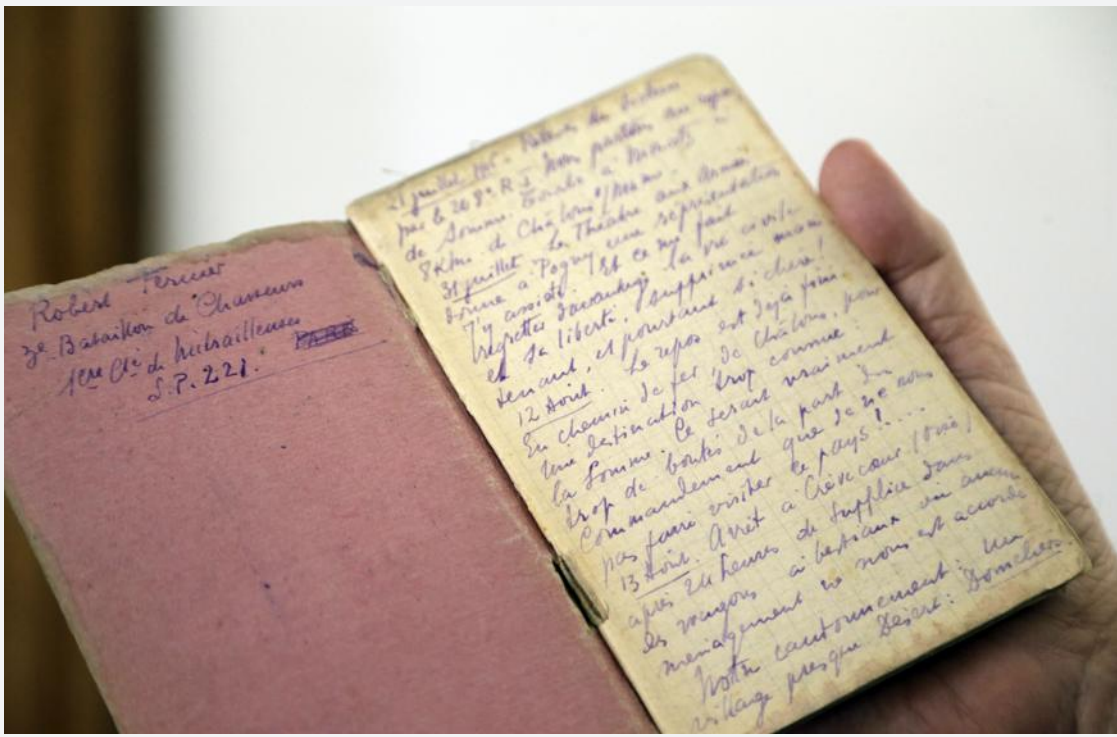 Robert
3e Bataillon de Chasseurs
1ère Cie de Mitrailleuses
S.P. 221.
juillet Relève du secteur
par le 208e R.I. Nous partons au repos
de Somme. à
8 Km. de Châlons s/Marne.
31 juillet. Le Théâtre aux Armées
donne à Pogny une représentation
J'y assiste. Est ce my fait
regretter davantage la vie civile
et sa liberté, supprimée main
tenant, et pourtant si chère!
12 Août. Le repos est déjà fini
En chemin de fer, de Châlons, pour
une destination trop connue:
la Somme. Ce serait vraiment
trop de bontés de la part du
Commandement que de ne nous
pas faire visiter ce pays!...
13 Août. Arrêt à Crèvecœur (Oise)
après 24 heures de supplice dans
les wagons à bestiaux où aucun
ménagement ne nous est accordé
Notre cantonnement: un
village presque désert: